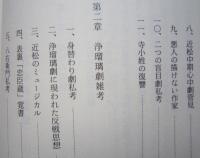 八、近松中期心中劇管見
九、悪人の描けない作家
一〇、二つの盲目劇私考
一一、寺小姓の復讐
第二章 浄瑠璃劇雑考
一、身替わり劇私考
二、浄瑠璃劇に現われた反戦思想
三、近松のミュージカル
四、表裏「忠臣蔵」覚書
五、八右衛門私考